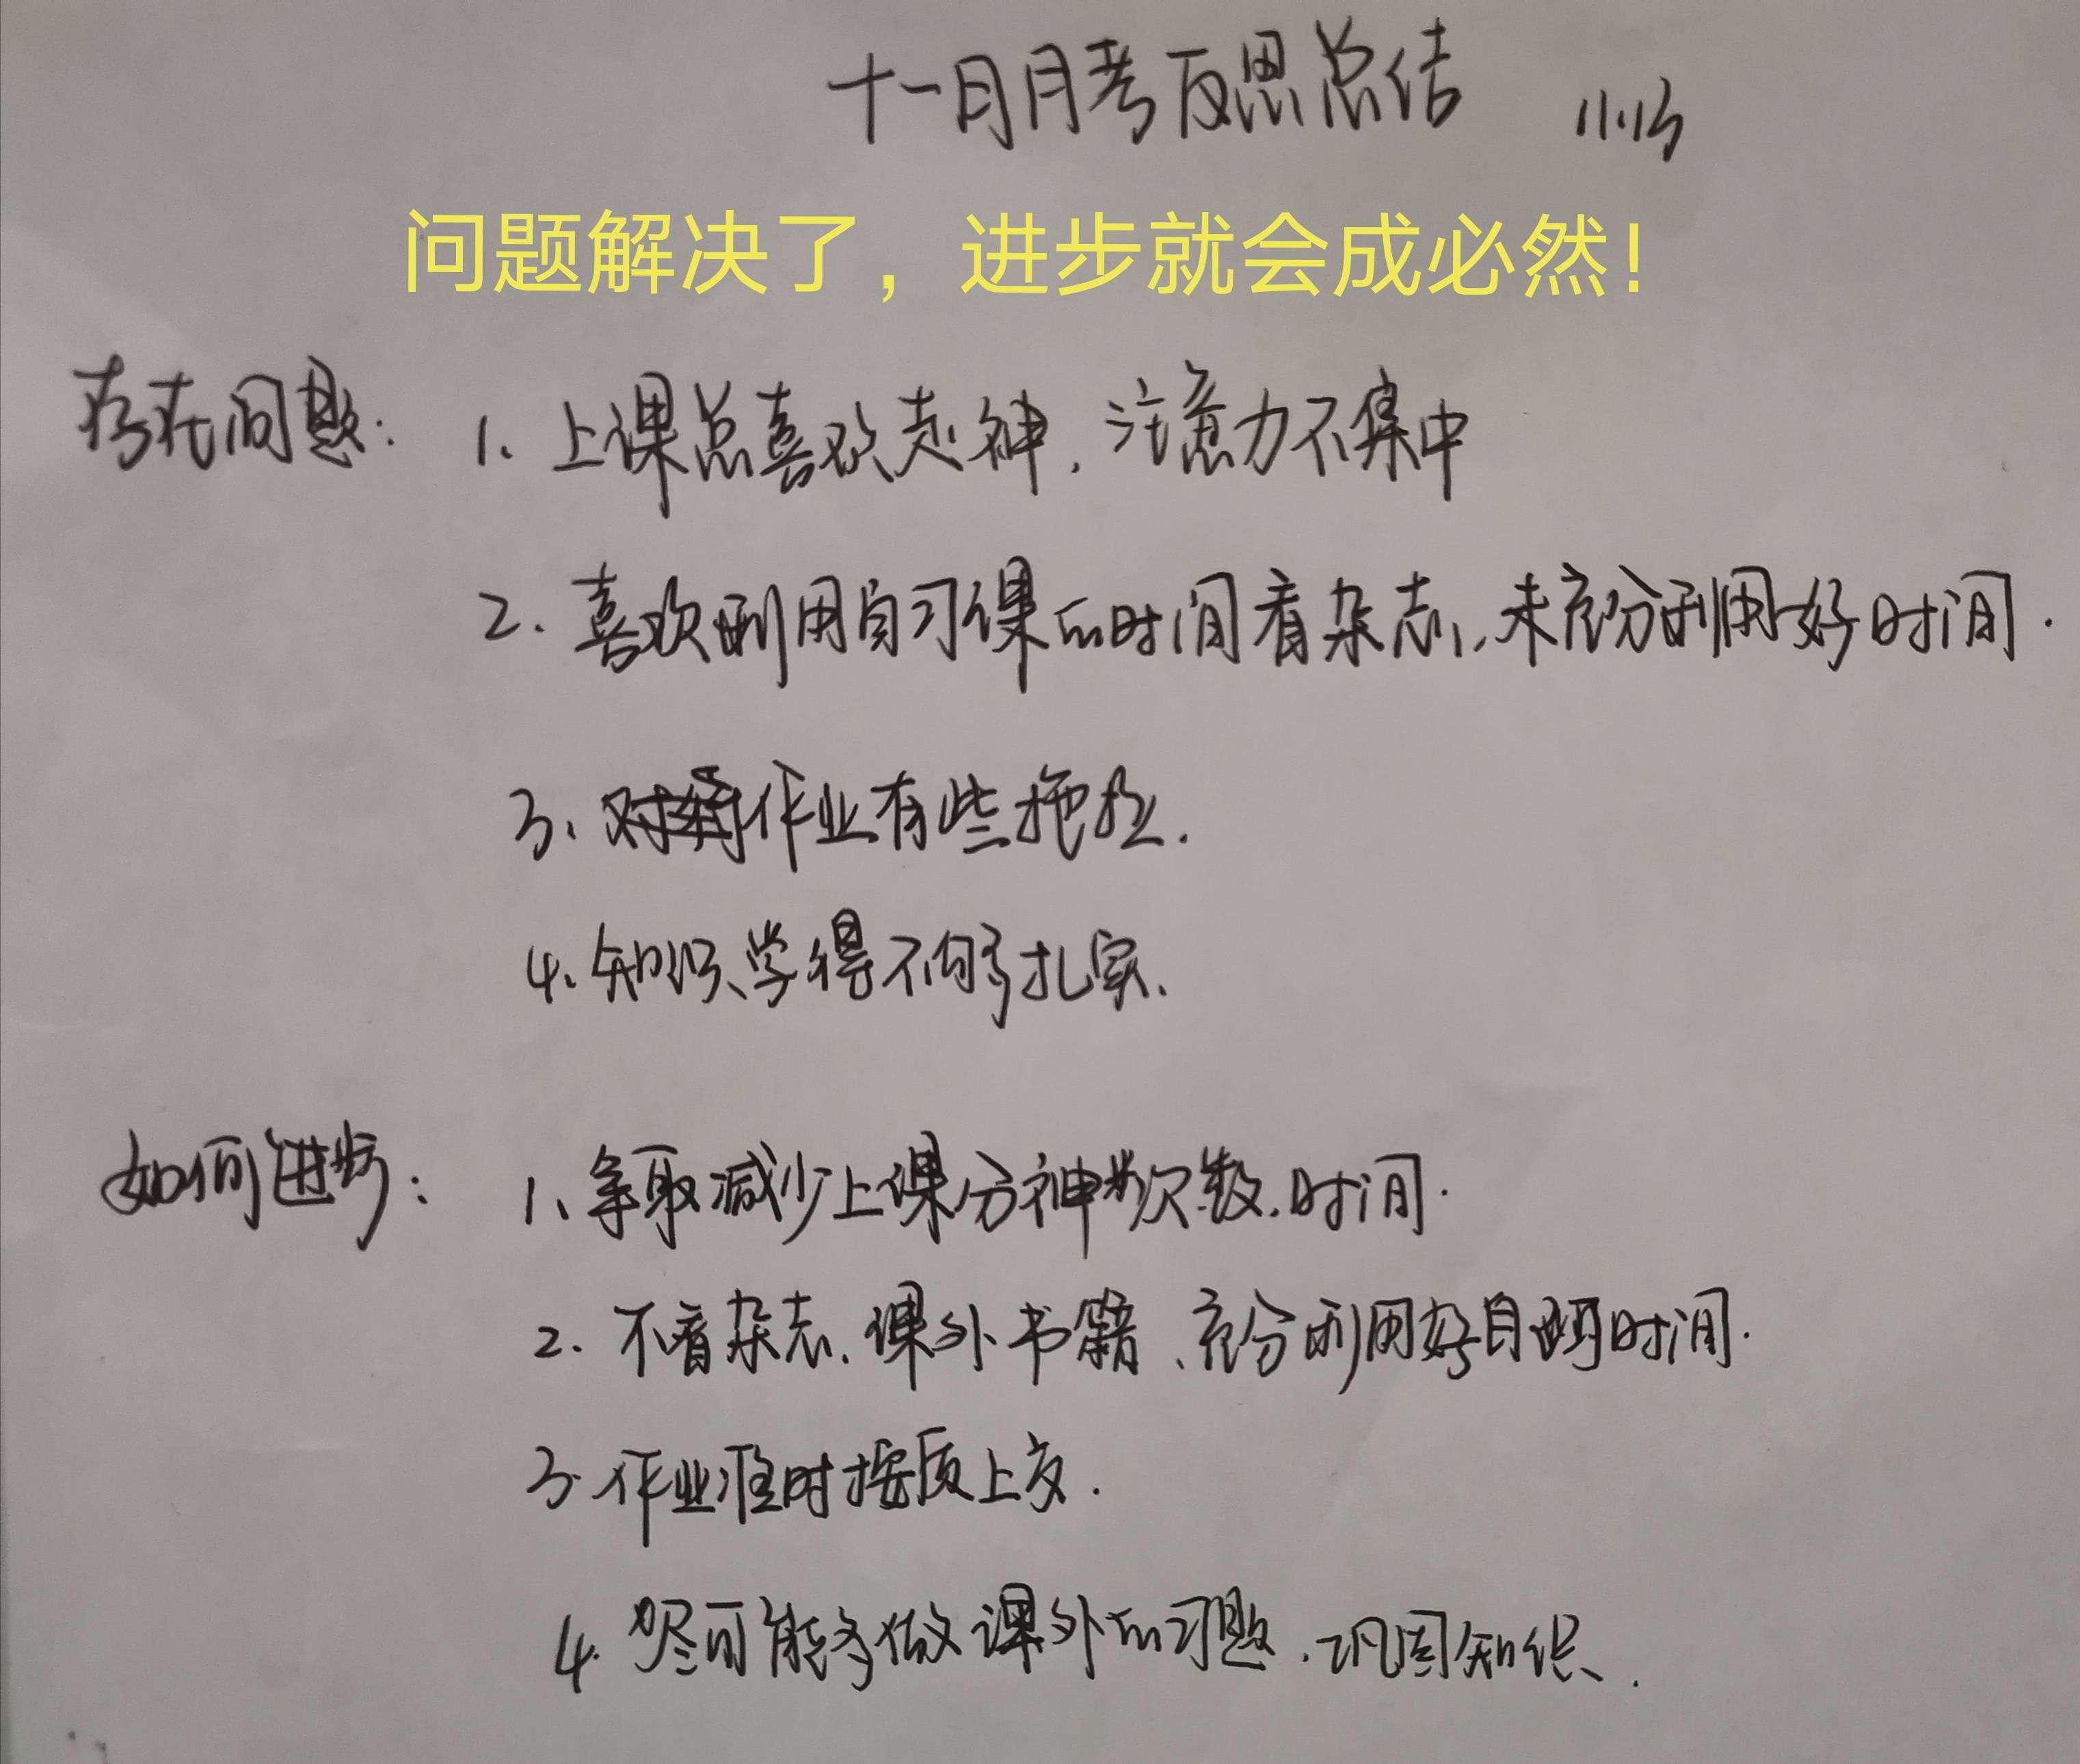 十一月月考反思总结 11.13
问题解决了，进步就会成必然！
存在问题： 1、上课总喜欢走神，注意力不集中
2. 喜欢利用自习课的时间看杂志，未充分利用好时间.
3、对作业有些拖拉.
4、知识学得不够扎实、
如何进步： 1、争取减少上课分神次数、时间.
2. 不看杂志、课外书籍、充分利用好自习时间.
3. 作业准时按质上交.
4. 尽可能多做课外的习题，巩固知识、.